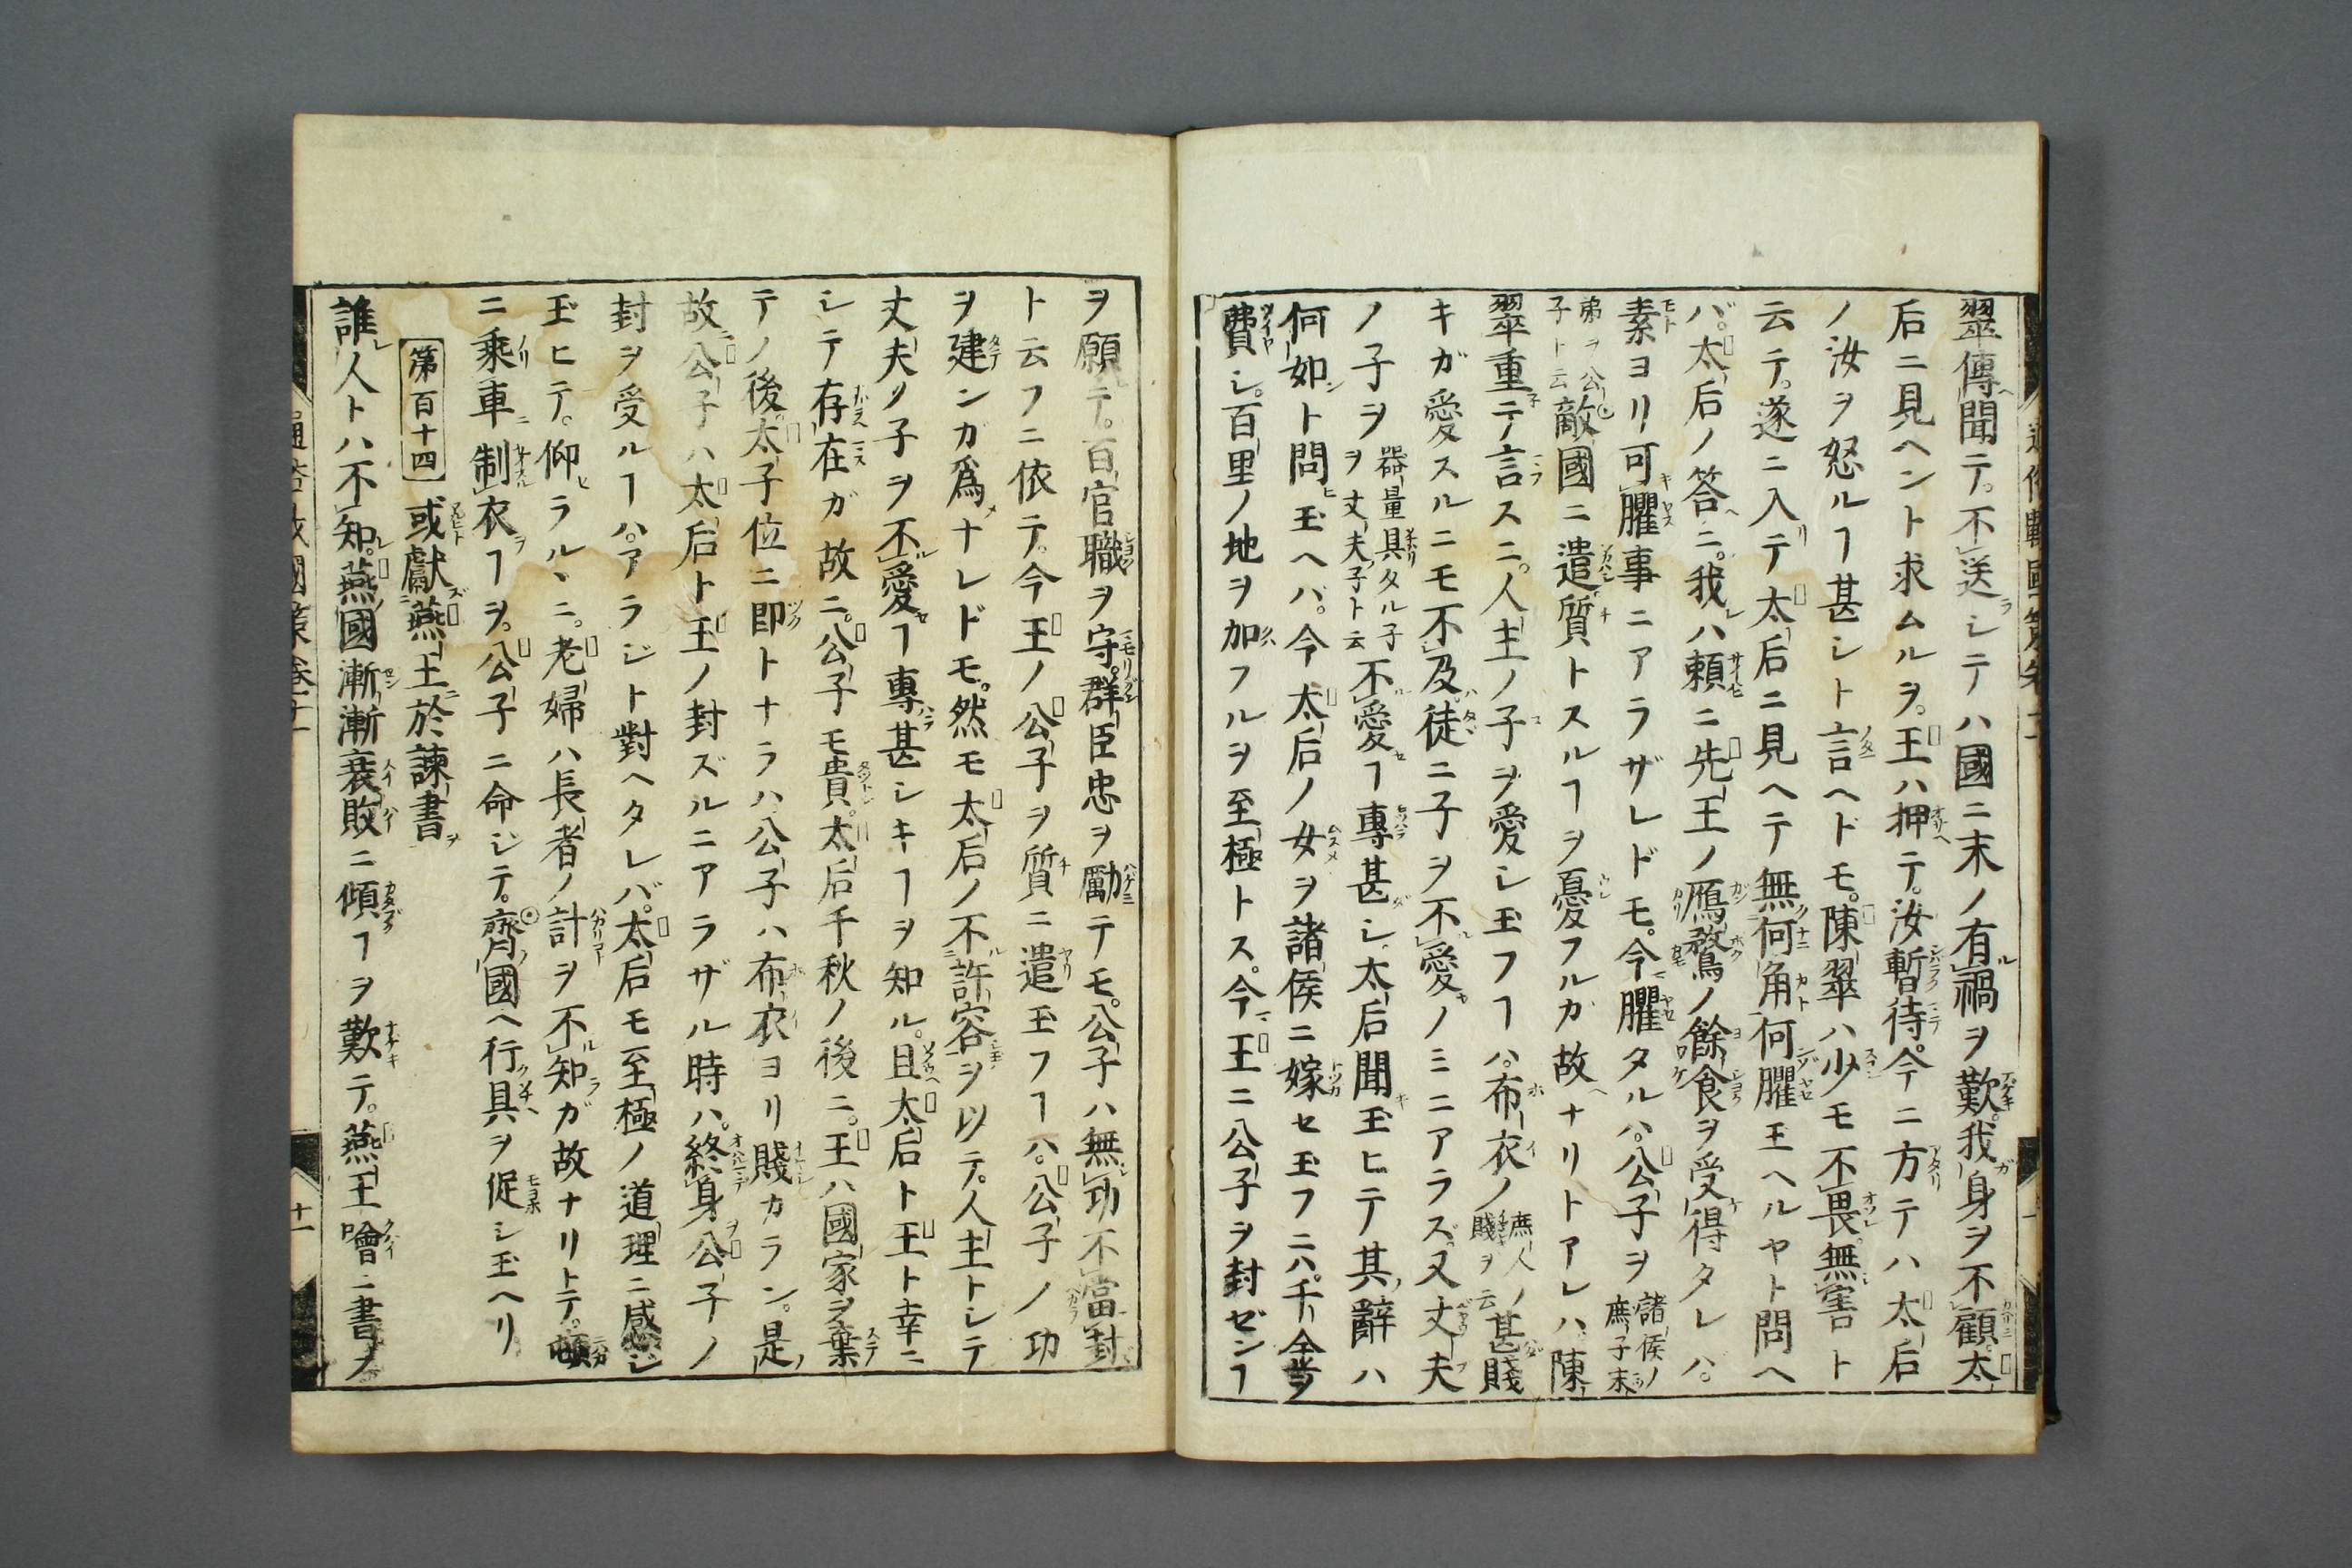 翠傳聞テ。不送シテハ國ニ末ノ有禍ヲ歎。我身ヲ不顧。太
后ニ見ヘント求ムルヲ。王ハ押テ。汝暫待。今ニ方テハ太后
ノ汝ヲ怒ルヿ甚シト言ヘドモ。陳翠ハ少モ不畏。無害ト
云テ。遂ニ入テ太后ニ見ヘテ無何角何臞玉ヘルヤト問ヘ
バ。太后ノ答ニ。我ハ頼ニ先王ノ鴈鶩ノ餘食ヲ受得タレバ。
素ヨリ可臞事ニアラザレドモ。今臞タルハ。公子ヲ諸侯ノ庶子末
弟ヲ公子ト云敵國ニ遣質トスルヿヲ憂フルガ故ナリトアレハ。陳
翠重テ言スニ。人主ノ子ヲ愛シ玉フヿハ。布衣ノ庶人ノ賤ヲ云甚賤
キガ愛スルニモ不及。徒ニ子ヲ不愛ノミニアラズ。又丈夫
ノ子ヲ器量具タル子ヲ丈夫子ト云不愛ヿ專甚シ。太后聞玉ヒテ其辭ハ
何如ト問玉ヘバ。今太后ノ女ヲ諸侯ニ嫁セ玉フニハ。千金ヲ
費シ。百里ノ地ヲ加フルヲ至極トス。今王ニ公子ヲ封ゼンヿ
ヲ願テ。百官職ヲ守。群臣忠ヲ勵テモ。公子ハ無功不當封
ト云フニ依テ。今王ノ公子ヲ質ニ遣玉フヿハ。公子ノ功
ヲ建ンガ爲ナレドモ。然モ太后ノ不許容ヲ以テ。人主トシテ
丈夫ノ子ヲ不愛ヿ專甚シキヿヲ知ル。且太后ト王ト幸ニ
シテ存在ガ故ニ。公子モ貴。太后千秋ノ後ニ。王ハ國家ヲ棄
テノ後。太子位ニ即トナラハ。公子ハ布衣ヨリ賤カラン。是
故公子ハ太后ト王ノ封ズルニアラザル時ハ。終身公子ノ
封ヲ受ルヿハ。アラジト對ヘタレバ。太后モ至極ノ道理ニ感ジ
玉ヒテ。仰ラルヽニ。老婦ハ長者ノ計ヲ不知ガ故ナリトテ。頓
ニ乘車制衣ヿヲ。公子ニ命ジテ。齊國ヘ行具ヲ促シ玉ヘリ
第百十四 或獻燕王於諫書
誰人トハ不知。燕國漸漸衰敗ニ傾ヿヲ歎テ。燕王噲ニ書ノ
十一